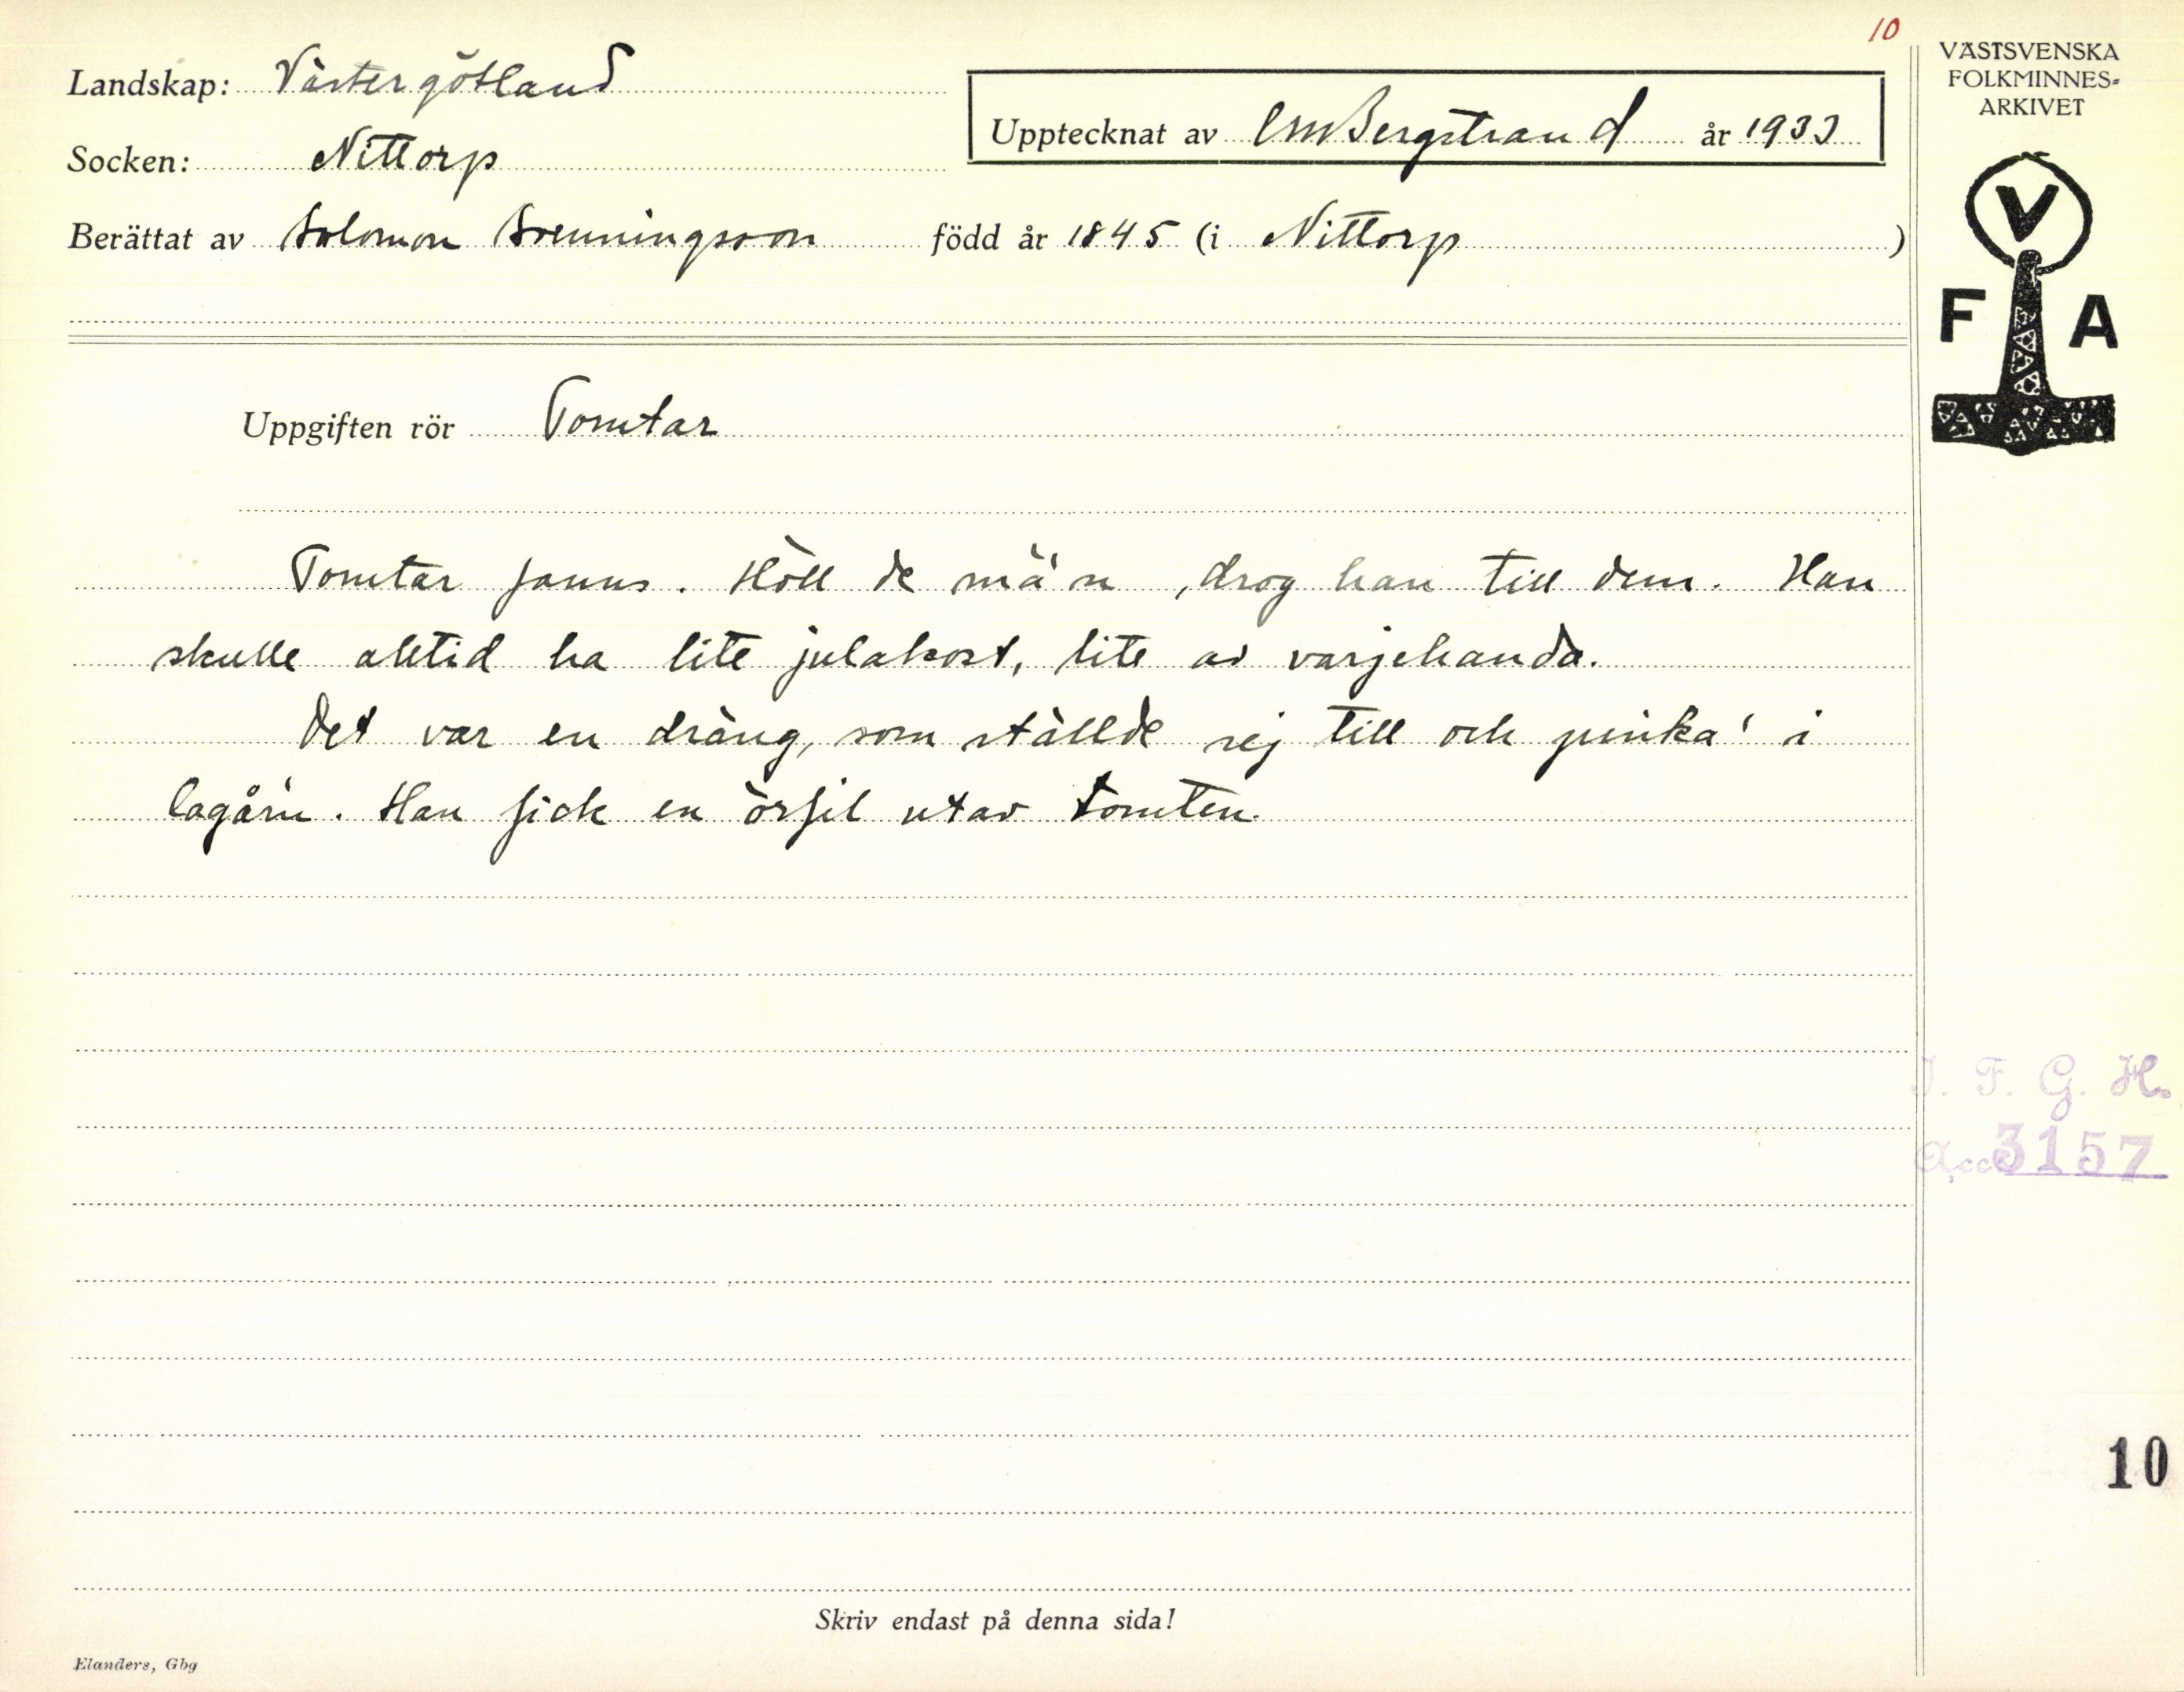 10
VÄSTSVENSKA
FOLKMINNES-
ARKIVET
Landskap: Västergötland
Upptecknat av CMBergstrand år 1933
Socken: Nittorp
Berättat av Salomon Svenningsson född år 1845 (i Nittorp)
V
F A
Uppgiften rör Tomtar
Tomtar fanns. Höll de mä'n, drog han till dem. Han
skulle alltid ha lite julakost, lite av varjehanda.
Det var en dräng, som ställde sej till och pinka' i
lagår'n. Han fick en örfil utav tomten.
I. F. G. H.
Acc 3157
10
Skriv endast på denna sida!
Elanders, Gbg